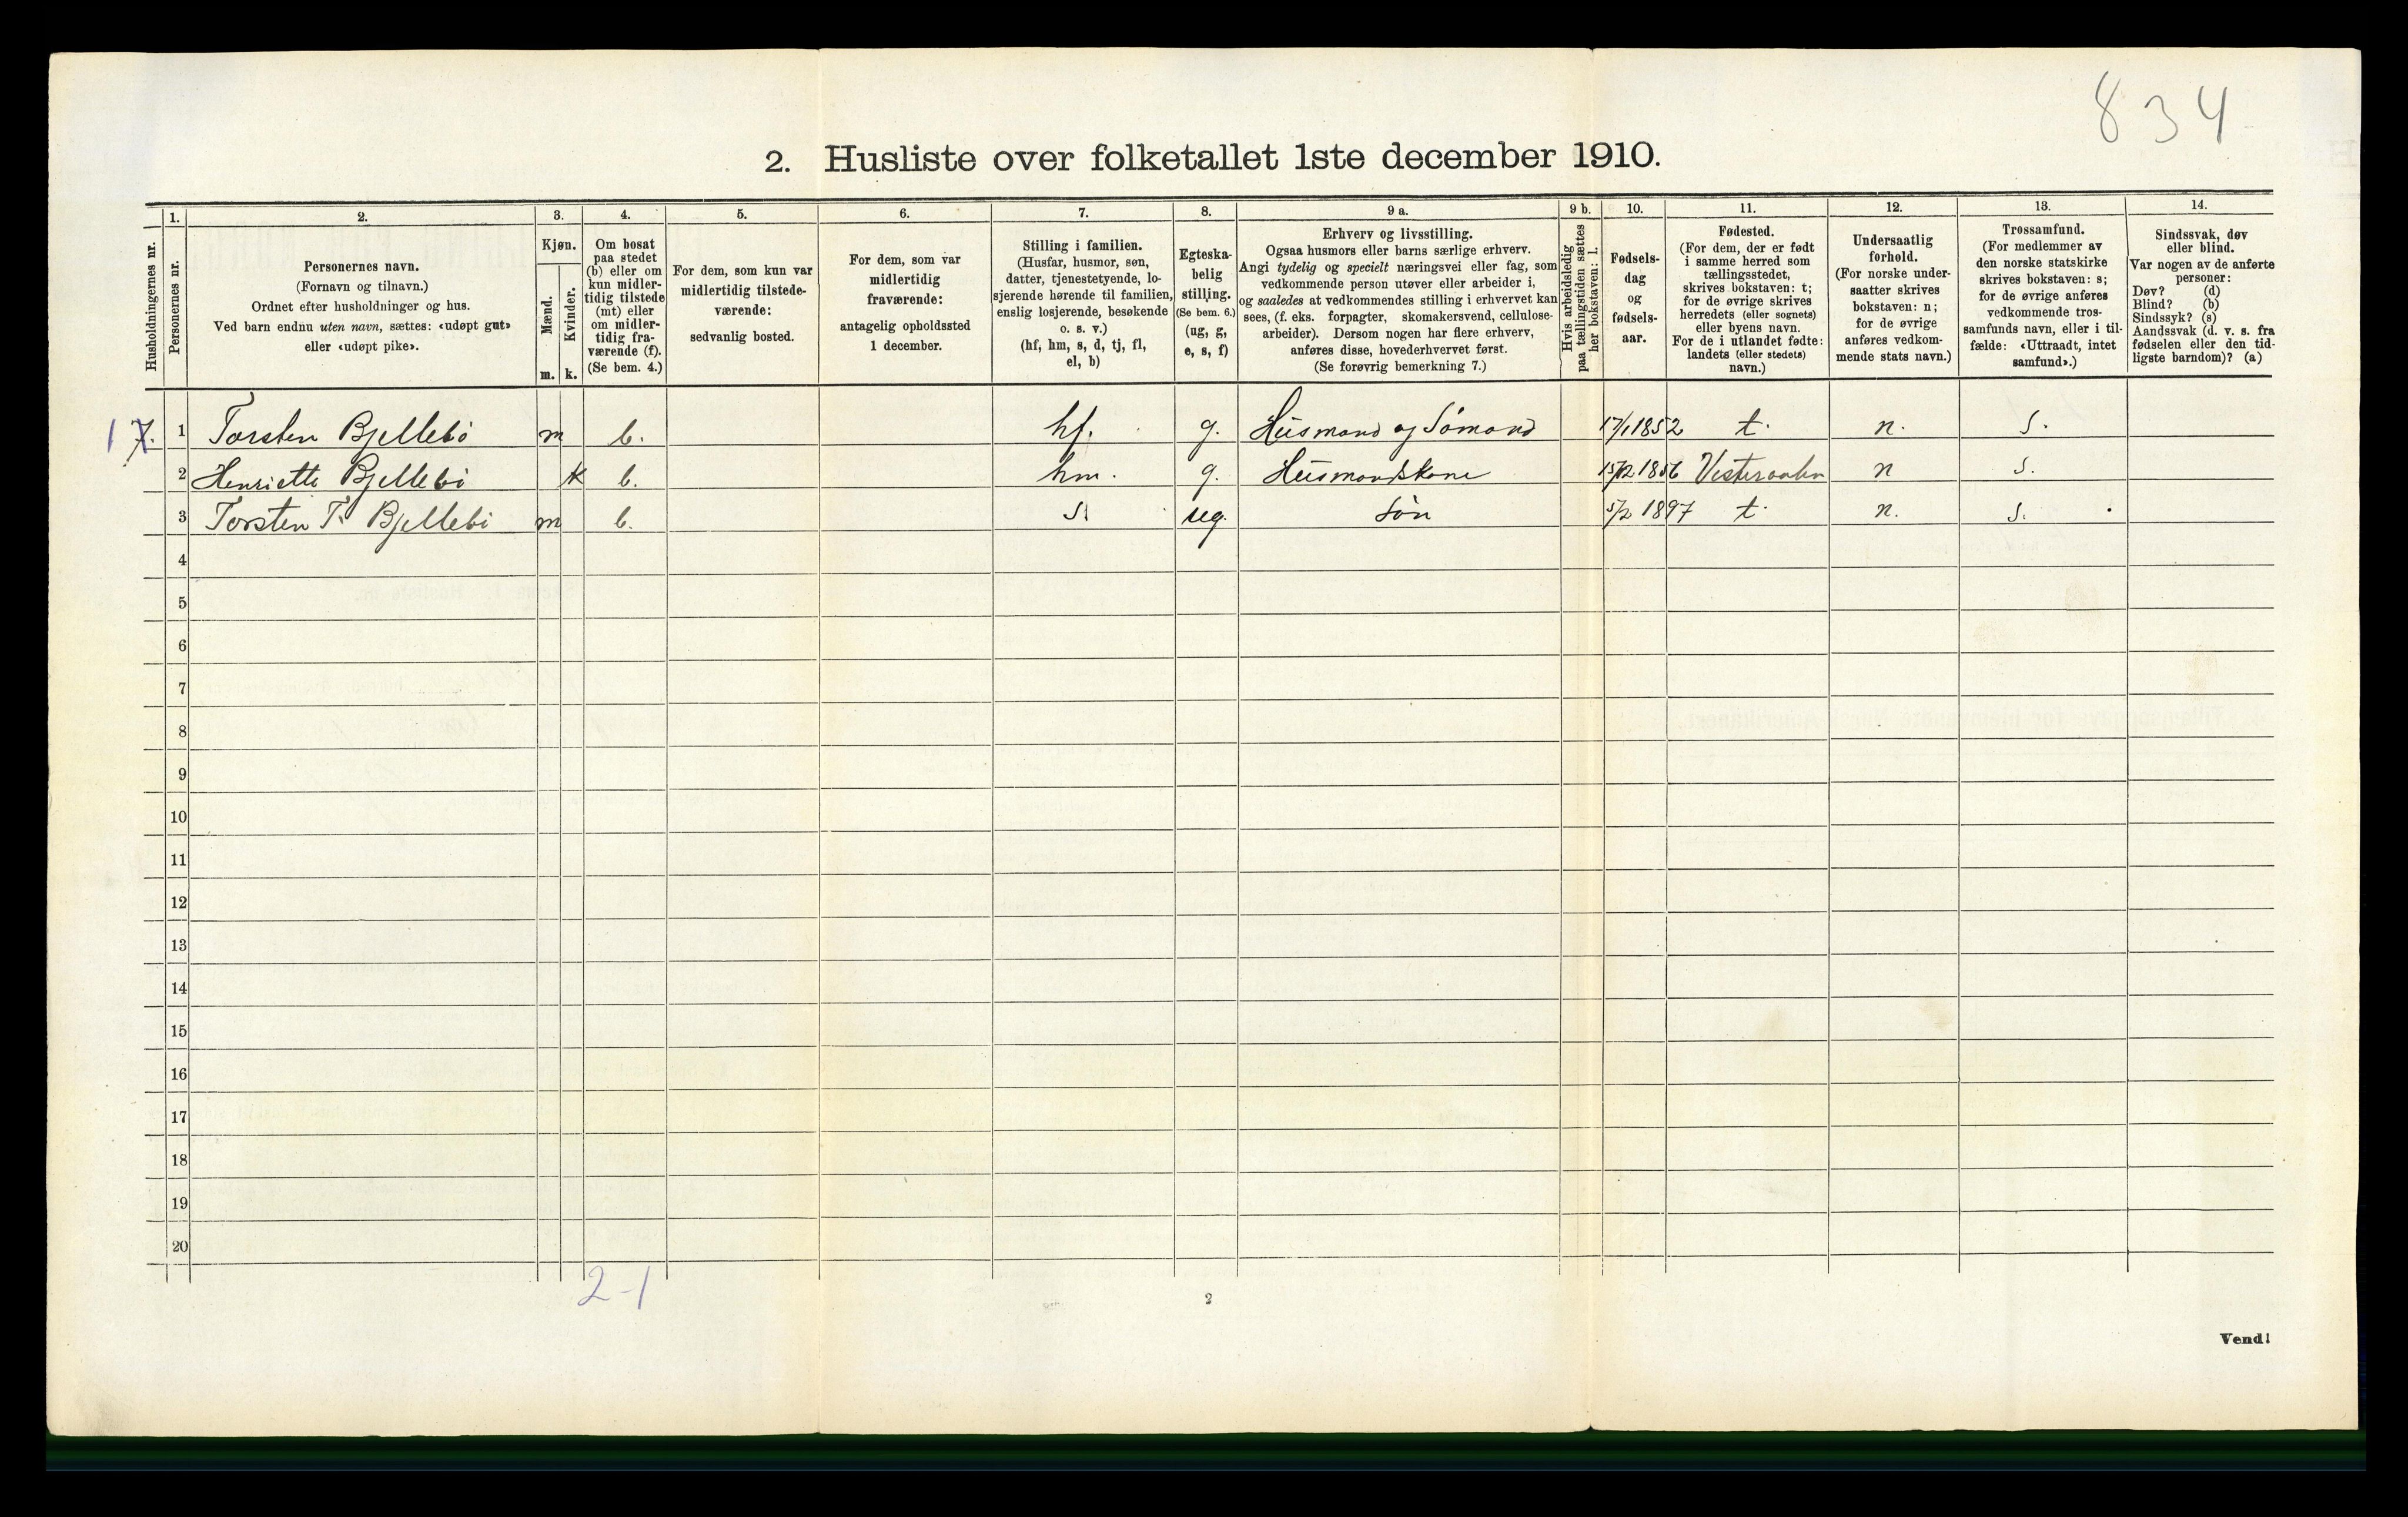 834
2. Husliste over folketallet 1ste december 1910.
Husholdningernes nr.
1.
Personernes nr.
2.
Personernes navn.
(Fornavn og tilnavn.)
Ordnet efter husholdninger og hus.
Ved barn endnu uten navn, sættes: «udøpt gut»
eller «udøpt pike».
3.
Kjøn.
Mænd.
Kvinder.
m. k.
4.
Om bosat
paa stedet
(b) eller om
kun midler-
tidig tilstede
(mt) eller
om midler-
tidig fra-
værende (f).
(Se bem. 4.)
5.
For dem, som kun var
midlertidig tilstede-
værende:
sedvanlig bosted.
6.
For dem, som var
midlertidig
fraværende:
antagelig opholdssted
1 december.
7.
Stilling i familien.
(Husfar, husmor, søn,
datter, tjenestetyende, lo-
sjerende hørende til familien,
enslig losjerende, besøkende
o. s. v.)
(hf, hm, s, d, tj, fl,
el, b)
8.
Egteska-
belig
stilling.
(Se bem. 6.)
(ug, g,
e, s, f)
9 a.
Erhverv og livsstilling.
Ogsaa husmors eller barns særlige erhverv.
Angi tydelig og specielt næringsvei eller fag, som
vedkommende person utøver eller arbeider i,
og saaledes at vedkommendes stilling i erhvervet kan
sees, (f. eks. forpagter, skomakersvend, cellulose-
arbeider). Dersom nogen har flere erhverv,
anføres disse, hovederhvervet først.
(Se forøvrig bemerkning 7.)
9 b.
Hvis arbeidsledig
paa tællingstiden sættes
her bokstaven: l.
10.
Fødsels-
dag
og
fødsels-
aar.
11.
Fødested.
(For dem, der er født
i samme herred som
tællingsstedet,
skrives bokstaven: t;
for de øvrige skrives
herredets (eller sognets)
eller byens navn.
For de i utlandet fødte:
landets (eller stedets)
navn.)
12.
Undersaatlig
forhold.
(For norske under-
saatter skrives
bokstaven: n;
for de øvrige
anføres vedkom-
mende stats navn.)
13.
Trossamfund.
(For medlemmer av
den norske statskirke
skrives bokstaven: s;
for de øvrige anføres
vedkommende tros-
samfunds navn, eller i til-
fælde: «Uttraadt, intet
samfund».)
14.
Sindssvak, døv
eller blind.
Var nogen av de anførte
personer:
Døv? (d)
Blind? (b)
Sindssyk? (s)
Aandssvak (d. v. s. fra
fødselen eller den tid-
ligste barndom)? (a)
1 7. 1 Torsten Bjellebö m b. hf. g. Husmand og Sömand 17/1 1852 t. n. s.
2 Henriette Bjellebö k b. hm. g. Husmandskone 15/12 1856 n s.
3 Torsten T. Bjellebö m b. s. ug. Sön 5/2 1897 t. n. s.
4
5
6
7
8
9
10
11
12
13
14
15
16
17
18
19
20
2-1
2
Vend!